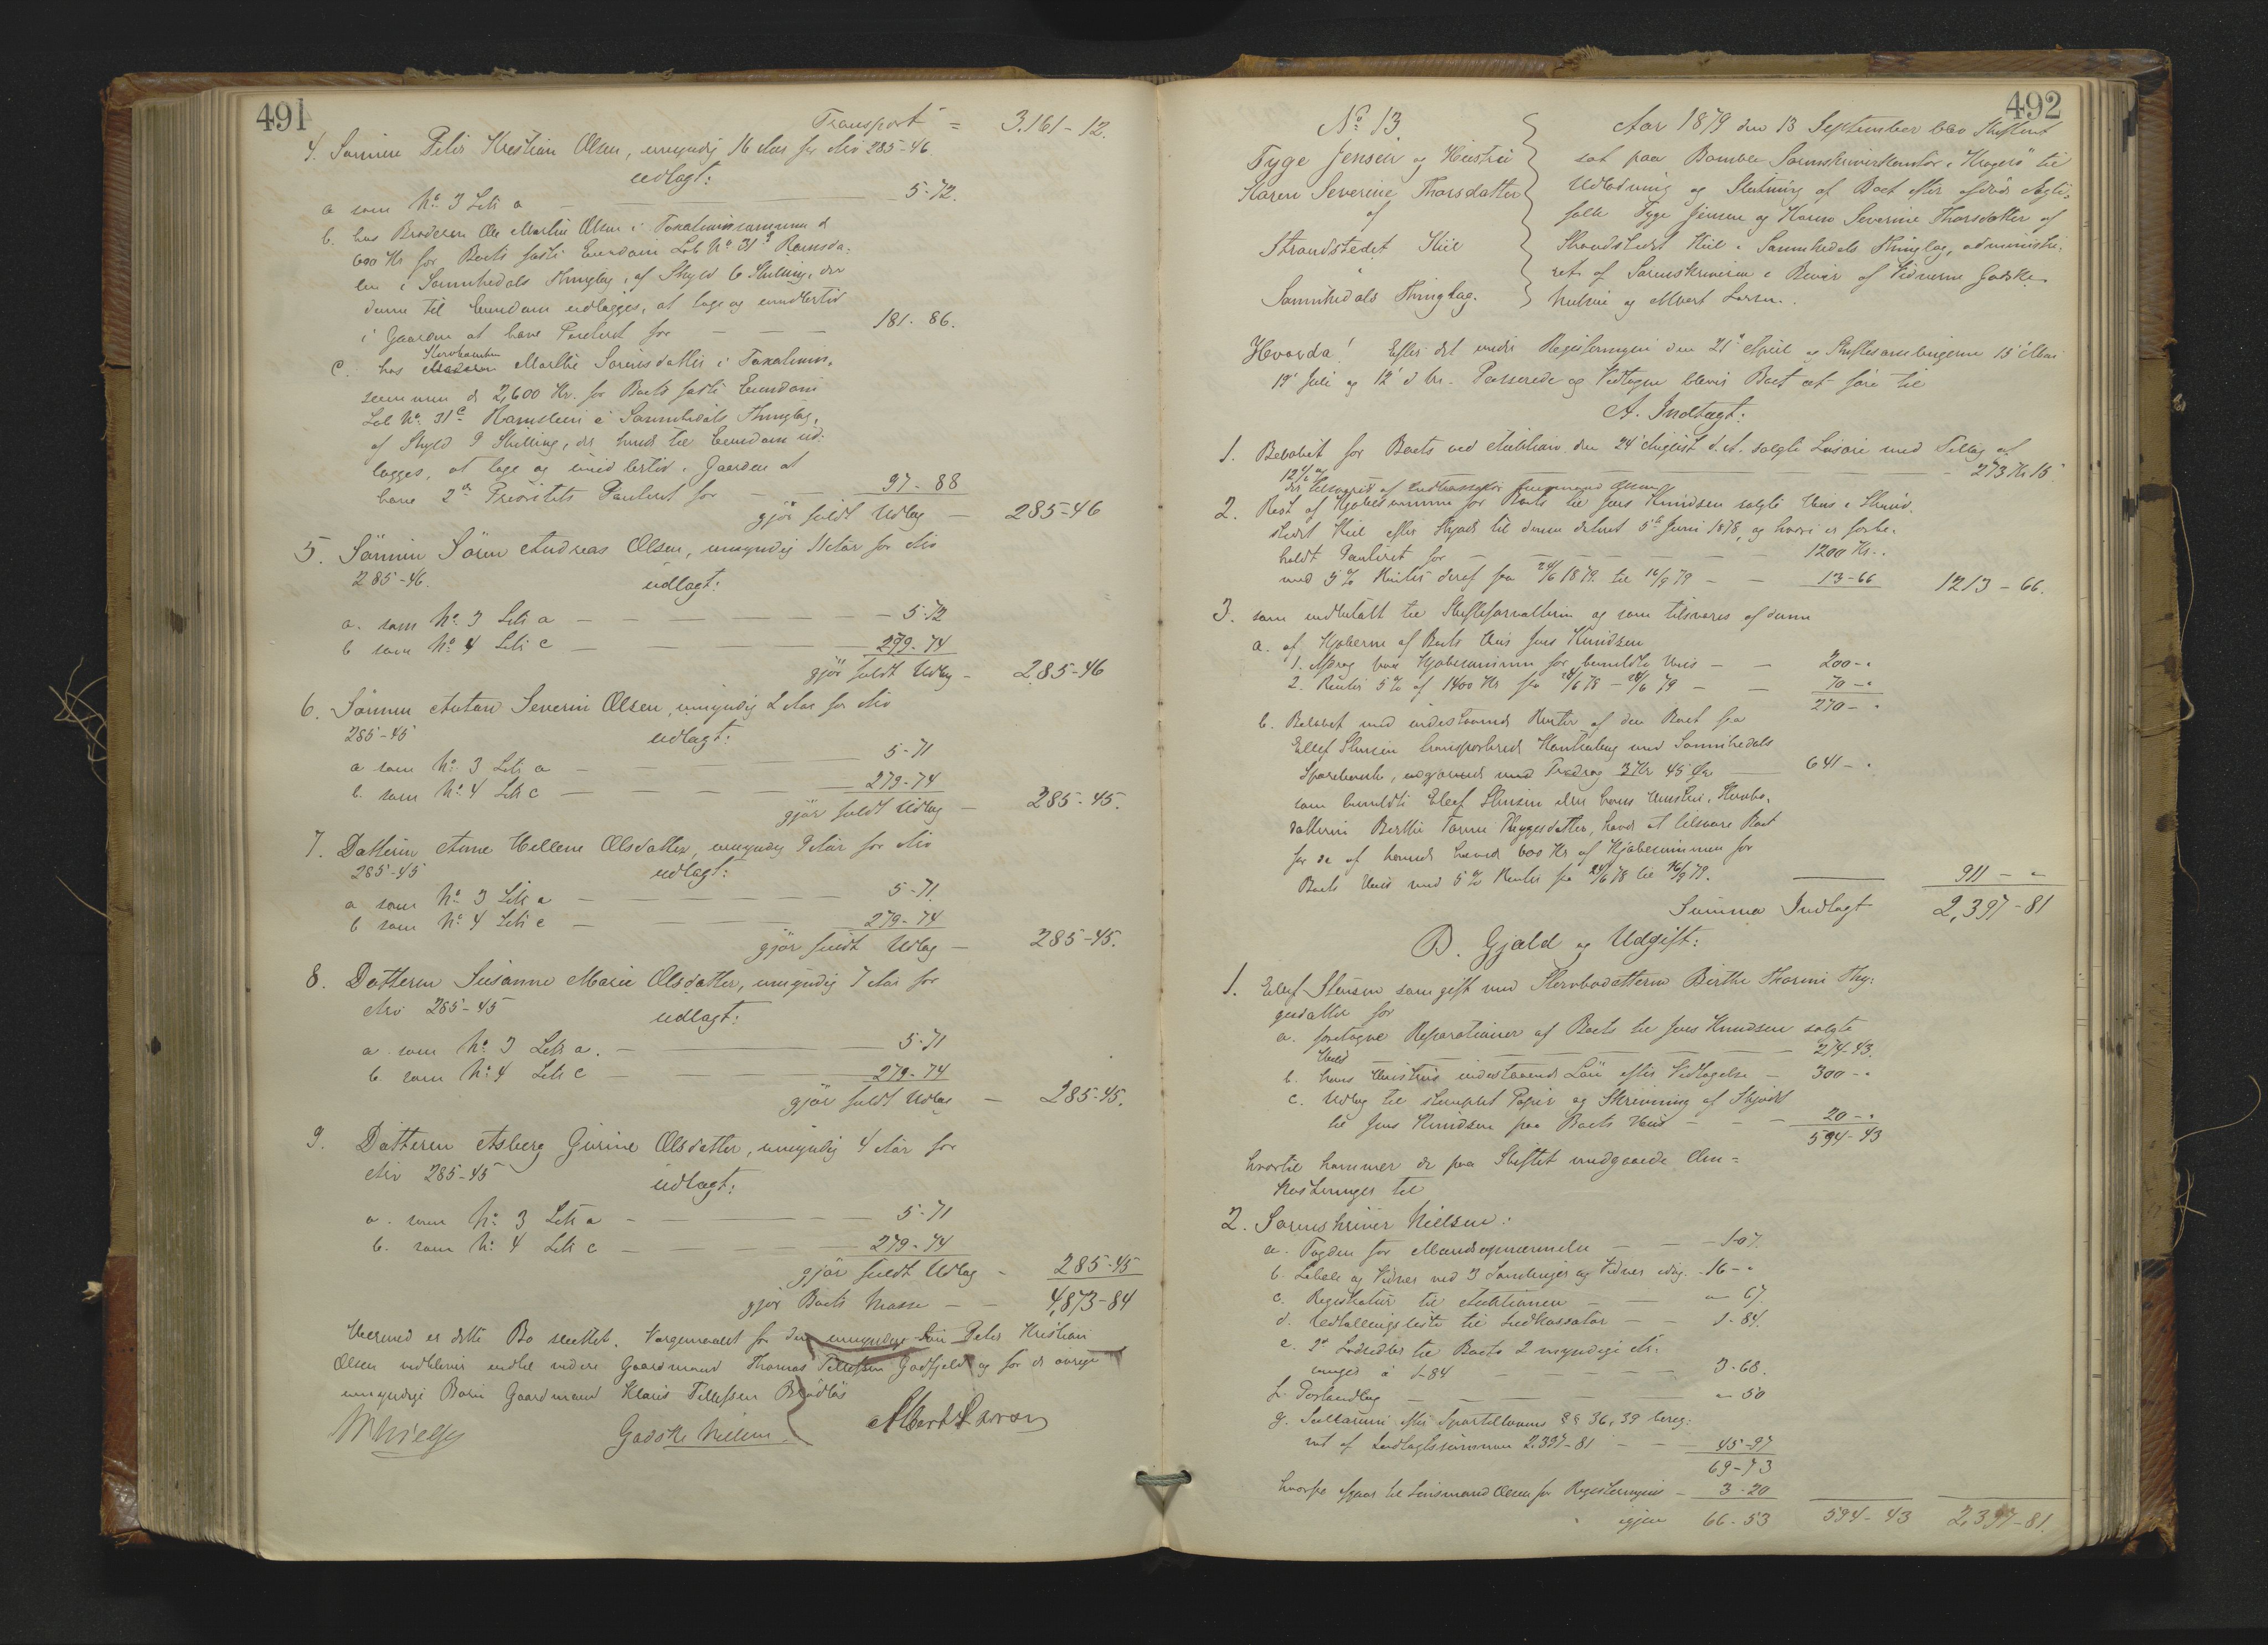 491
Transport = 3.161-12.
4. Sønnen Peder Kristian Olsen, umyndig 16 Aar for Arv 285-46.
udlagt:
a som No 3 Litr a — 5-72.
b. hos Broderen Ole Martin Olsen i Taxationssummen
600 Kr for Boets faste Eiendom Løb No 31 Ramsda-
len i Sannikedals Thinglag, af Skyld 6 Skilling, der
denne til Eiendom udlægges, at tage og imidlertid
i Gaarden at have Panteret for — 181-86.
c. hos Stervboenken Marthe Sørensdatter i Taxations-
summen 2,600 Kr. for Boets faste Eiendom
Løb No 31 c i Sannikedals Thinglag,
af Skyld 9 Skilling, der hende til Eiendom ud-
lægges, at tage og imidlertid i Gaarden at
have 2den Prioritets Panteret for — 97-88
gjør fuldt Udlæg — 285-46
5. Sønnen Søren Andreas Olsen, umyndig 11 Aar for Arv
285-46. udlagt:
a. som No 3 Litr a — 5-72
b som No 4 Litr c — 279-74
gjør fuldt Udlæg — 285-46
6. Sønnen Anton Severin Olsen, umyndig 2 Aar for Arv
285-45 udlagt:
a som No 3 Litr a — 5-71
b. som No 4 Litr c — 279-74
gjør fuldt Udlæg — 285-45.
7. Datteren Anne Hellene Olsdatter, umyndig 9 Aar for Arv
285-45 udlagt:
a som No 3 Litr a — 5-71.
b som No 4 Litr c — 279-74
gjør fuldt Udlæg — 285-45.
8. Datteren Susanne Marie Olsdatter, umyndig 7 Aar for
Arv 285-45 udlagt:
a som No 3 Litr a. — 5-71
b. som No 4 Litr c — 279-74
gjør fuldt Udlæg — 285-45.
9. Datteren Asberg Gurine Olsdatter, umyndig 4 Aar for
Arv 285-45 udlagt:
a. som No 3 Litr a — 5-71
b. som No 4 Litr c — 279-74
gjør fuldt Udlæg — 285-45
gjør Boets Masse — 4,873-84
Hermed er dette Bo sluttet. Værgemaalet for den umyndige Søn Peder Kristian
Olsen udbliver indtil videre Gaardmand Thomas Tellefsen Godfjeld og for de øvrige
umyndige Børn Gaardmand Klaus Tellefsen
Godske Nielsen. Albert Larsen
492
No 13.
Tyge Jensen og Hustru
Karen Severine Thorsdatter
af
Strandstedet Kiil
i
Sannikedals Thinglag.
Aar 1879 den 13 September blev Skifteret
sat paa Bamble Sorenskriverkontor i Kragerø til
Udlodning og Slutning af Boet efter afdøde Ægte-
folk Tyge Jensen og Karen Severine Thorsdatter af
Strandstedet Kiil i Sannikedals Thinglag, administre-
ret af Sorenskriveren i Bevær af Vidnerne Godske
Nielsen og Albert Larsen.
Hvorda! Efter det under Registeringen den 21de April og Skiftesamlingerne 13de Mai
12te Juli og 12te d. M. Passerede og Vedtagne blever Boet at føre til
A. Indtægt:
1. Beløbet for Boets ved Auktion den 24 August d. A. solgte Løsøre med Tillæg af
12% og — 273 Kr 15
der tilsvares af Indkassator
2. Rest af Kjøbesummen for Boets til Jens Knudsen solgte Hus i Strand-
stedet Kiil efter Skjøde til denne dateret 5te Juni 1878, og hvori er forbe-
holdt Panteret for — 1200 Kr.
med 5% Renter deraf fra 24/6 1879 til 16/9 79 — 13-66 1213-66.
3. som indbetalt til Skifteforvalteren og som tilsvares af denne
a. af Kjøberen af Boets Hus Jens Knudsen
1. Afdrag paa Kjøbesummen for bemeldte Hus — 200-"
2. Renter 5% af 1400 Kr fra 24/6 78 - 24/6 79 — 70-"
270-"
b. Beløbet med indestaaende Renter af den Boet fra
Ellef Stensen transporterede Kontrabog med Sannikedals
Sparebank, udgjørende med Fradrag 3 Kr 45 Øre — 641-"
som bemeldte Ellef Stensen eller hans Hustru, Stervbo-
datteren Berthe Torine Thygesdatter, havde at tilsvare Boet
for de af hende hævede 600 Kr af Kjøbesummen for
Boets Hus med 5% Renter fra 24/6 78 til 16/9 79. — 911-"
Summa Indtægt 2,397-81
B. Gjæld og Udgift:
1. Ellef Stensen som gift med Stervbodatteren Birthe Thorine Thy-
gesdatter for
a. foretagne Reparationer af Boets til Jens Knudsen solgte
Huus — 274-43.
b. hans Hustrus indestaaende Løn efter Vedtagelse — 300-"
c. Udlæg til stemplet Papir og Skrivning af Skjødet
til Jens Knudsen paa Boets Hus — 20-"
594-43
hvortil kommer de paa Skiftet medgaaede Om-
kostninger til
2. Sorenskriver Nielsen:
a. Fogden for — 1-07.
b. Lebele og Vidner ved 3 Samlinger og Vidner idag. 16-"
c. Registratur til Auktionen — " 67
d. Udtællingsliste til Indkassator — 1-84.
e. 2de Lodsedler til Boets 2 myndige Ar-
vinger à 1-84 — 3-68.
f. Postindlæg — " 50
g. Sallarium efter Sportellovens §§ 36, 39 bereg-
net af Indtægtssummen 2.397-81 — 45-97
69-73
hvorfra afgaar til Lensmand Olsen for Registeringen — 3-20
igjen 66-53 594-43 2,397-81.